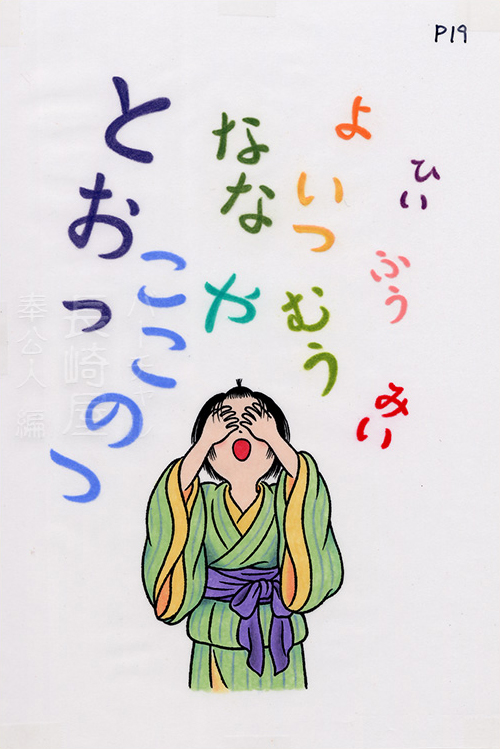 P19
ひい
ふう
みい
よ
いつ
むう
なな
や
ここのつ
とおっ
長崎屋
奉公人編